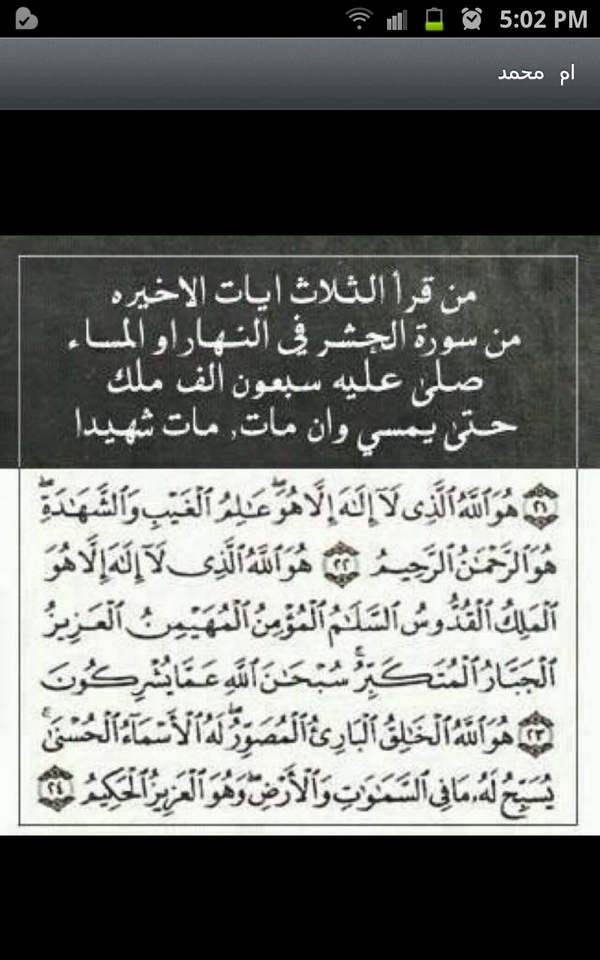 5:02 PM
ام محمد
من قرأ الثلاث ايات الاخيره
من سورة الحشر في النهار او المساء
صلى عليه سبعون الف ملك
حتى يمسي وان مات, مات شهيدا
٢١ هُوَ ٱللَّهُ ٱلَّذِى لَآ إِلَٰهَ إِلَّا هُوَۖ عَٰلِمُ ٱلْغَيْبِ وَٱلشَّهَٰدَةِۖ
هُوَ ٱلرَّحْمَٰنُ ٱلرَّحِيمُ ٢٢ هُوَ ٱللَّهُ ٱلَّذِى لَآ إِلَٰهَ إِلَّا هُوَ
ٱلْمَلِكُ ٱلْقُدُّوسُ ٱلسَّلَٰمُ ٱلْمُؤْمِنُ ٱلْمُهَيْمِنُ ٱلْعَزِيزُ
ٱلْجَبَّارُ ٱلْمُتَكَبِّرُۚ سُبْحَٰنَ ٱللَّهِ عَمَّا يُشْرِكُونَ
٢٣ هُوَ ٱللَّهُ ٱلْخَٰلِقُ ٱلْبَارِئُ ٱلْمُصَوِّرُۖ لَهُ ٱلْأَسْمَآءُ ٱلْحُسْنَىٰۚ
يُسَبِّحُ لَهُۥ مَا فِى ٱلسَّمَٰوَٰتِ وَٱلْأَرْضِۖ وَهُوَ ٱلْعَزِيزُ ٱلْحَكِيمُ ٢٤